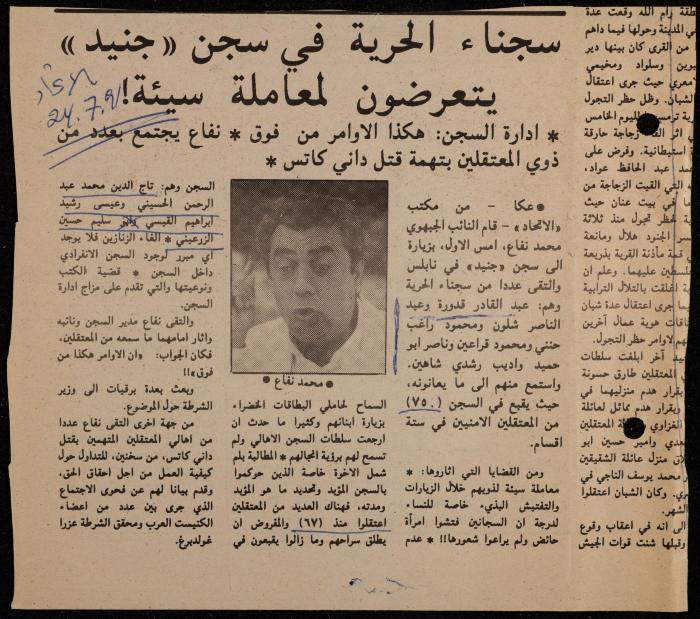 سجناء الحرية في سجن «جنيد»
يتعرضون لمعاملة سيئة!
* ادارة السجن: هكذا الاوامر من فوق * نفاع يجتمع بعدد من
ذوي المعتقلين بتهمة قتل داني كاتس *
24.7.91
● عكا – من مكتب
«الاتحاد» – قام النائب الجبهوي
محمد نفاع، امس الاول، بزيارة
الى سجن «جنيد» في نابلس
والتقى عددا من سجناء الحرية
وهم: عبد القادر قدورة وعبد
الناصر شلون ومحمود راغب
حنني ومحمود قراعين وناصر ابو
حميد واديب رشدي شاهين.
واستمع منهم الى ما يعانونه،
حيث يقبع في السجن (٧٥٠)
من المعتقلين الامنيين في ستة
اقسام.
ومن القضايا التي اثاروها: *
معاملة سيئة لذويهم خلال الزيارات
والتفتيش البذيء خاصة للنساء
لدرجة ان السجانين فتشوا امرأة
حائض ولم يراعوا شعورها!! * عدم
● محمد نفاع ●
السماح لحاملي البطاقات الخضراء
بزيارة ابنائهم وكثيرا ما حدث ان
ارجعت سلطات السجن الاهالي ولم
تسمح لهم برؤية انجالهم * المطالبة بلم
شمل الاخرة خاصة الذين حوكموا
بالسجن المؤبد وتحديد ما هو المؤبد
ومدته، فهناك العديد من المعتقلين
اعتقلوا منذ (٦٧) والمفروض ان
يطلق سراحهم وما زالوا يقبعون في
السجن وهم: تاج الدين محمد عبد
الرحمن الحسيني وعيسى رشيد
ابراهيم القيسي سليم حسين
الزرعيني * الغاء الزنازين فلا يوجد
اي مبرر لوجود السجن الانفرادي
داخل السجن * قضية الكتب
ونوعيتها والتي تقدم على مزاج ادارة
السجن.
والتقى نفاع مدير السجن ونائبه
واثار امامهما ما سمعه من المعتقلين،
فكان الجواب: «ان الاوامر هكذا من
فوق»!!
وبعث بعدة برقيات الى وزير
الشرطة حول الموضوع.
من جهة اخرى التقى نفاع عددا
من اهالي المعتقلين المتهمين بقتل
داني كاتس، من سخنين، للتداول حول
كيفية العمل من اجل احقاق الحق،
وقدم بيانا لهم عن فحوى الاجتماع
الذي جرى بين عدد من اعضاء
الكنيست العرب ومحقق الشرطة عزرا
غولدبرغ.
رام الله وقعت عدة
المدينة وحولها فيما داهم
من القرى كان بينها دير
وسلواد ومخيمي
معري حيث جرى اعتقال
الشبان. وظل حظر التجول
لليوم الخامس
زجاجة حارقة
استيطانية. وفرض على
عبد الحافظ عواد،
التي القيت الزجاجة من
في بيت عنان حيث
حظر تجول منذ ثلاثة
الجنود هلال ومانعة
قمة مأذنة القرية بذريعة
فلسطين عليهما. وعلم ان
اغلقت بالتلال الترابية
جرى اعتقال عدة شبان
هوية عمال آخرين
لاوامر حظر التجول.
آخر ابلغت سلطات
المعتقلين طارق حسونة
بقرار هدم منزليهما في
وبقرار هدم مماثل لعائلة
المعتقلين
وامير حسين ابو
منزل عائلة الشقيقين
محمد يوسف الناجي في
وكان الشبان اعتقلوا
الشهر.
الى انه في اعقاب وقوع
وقبلها شنت قوات الجيش